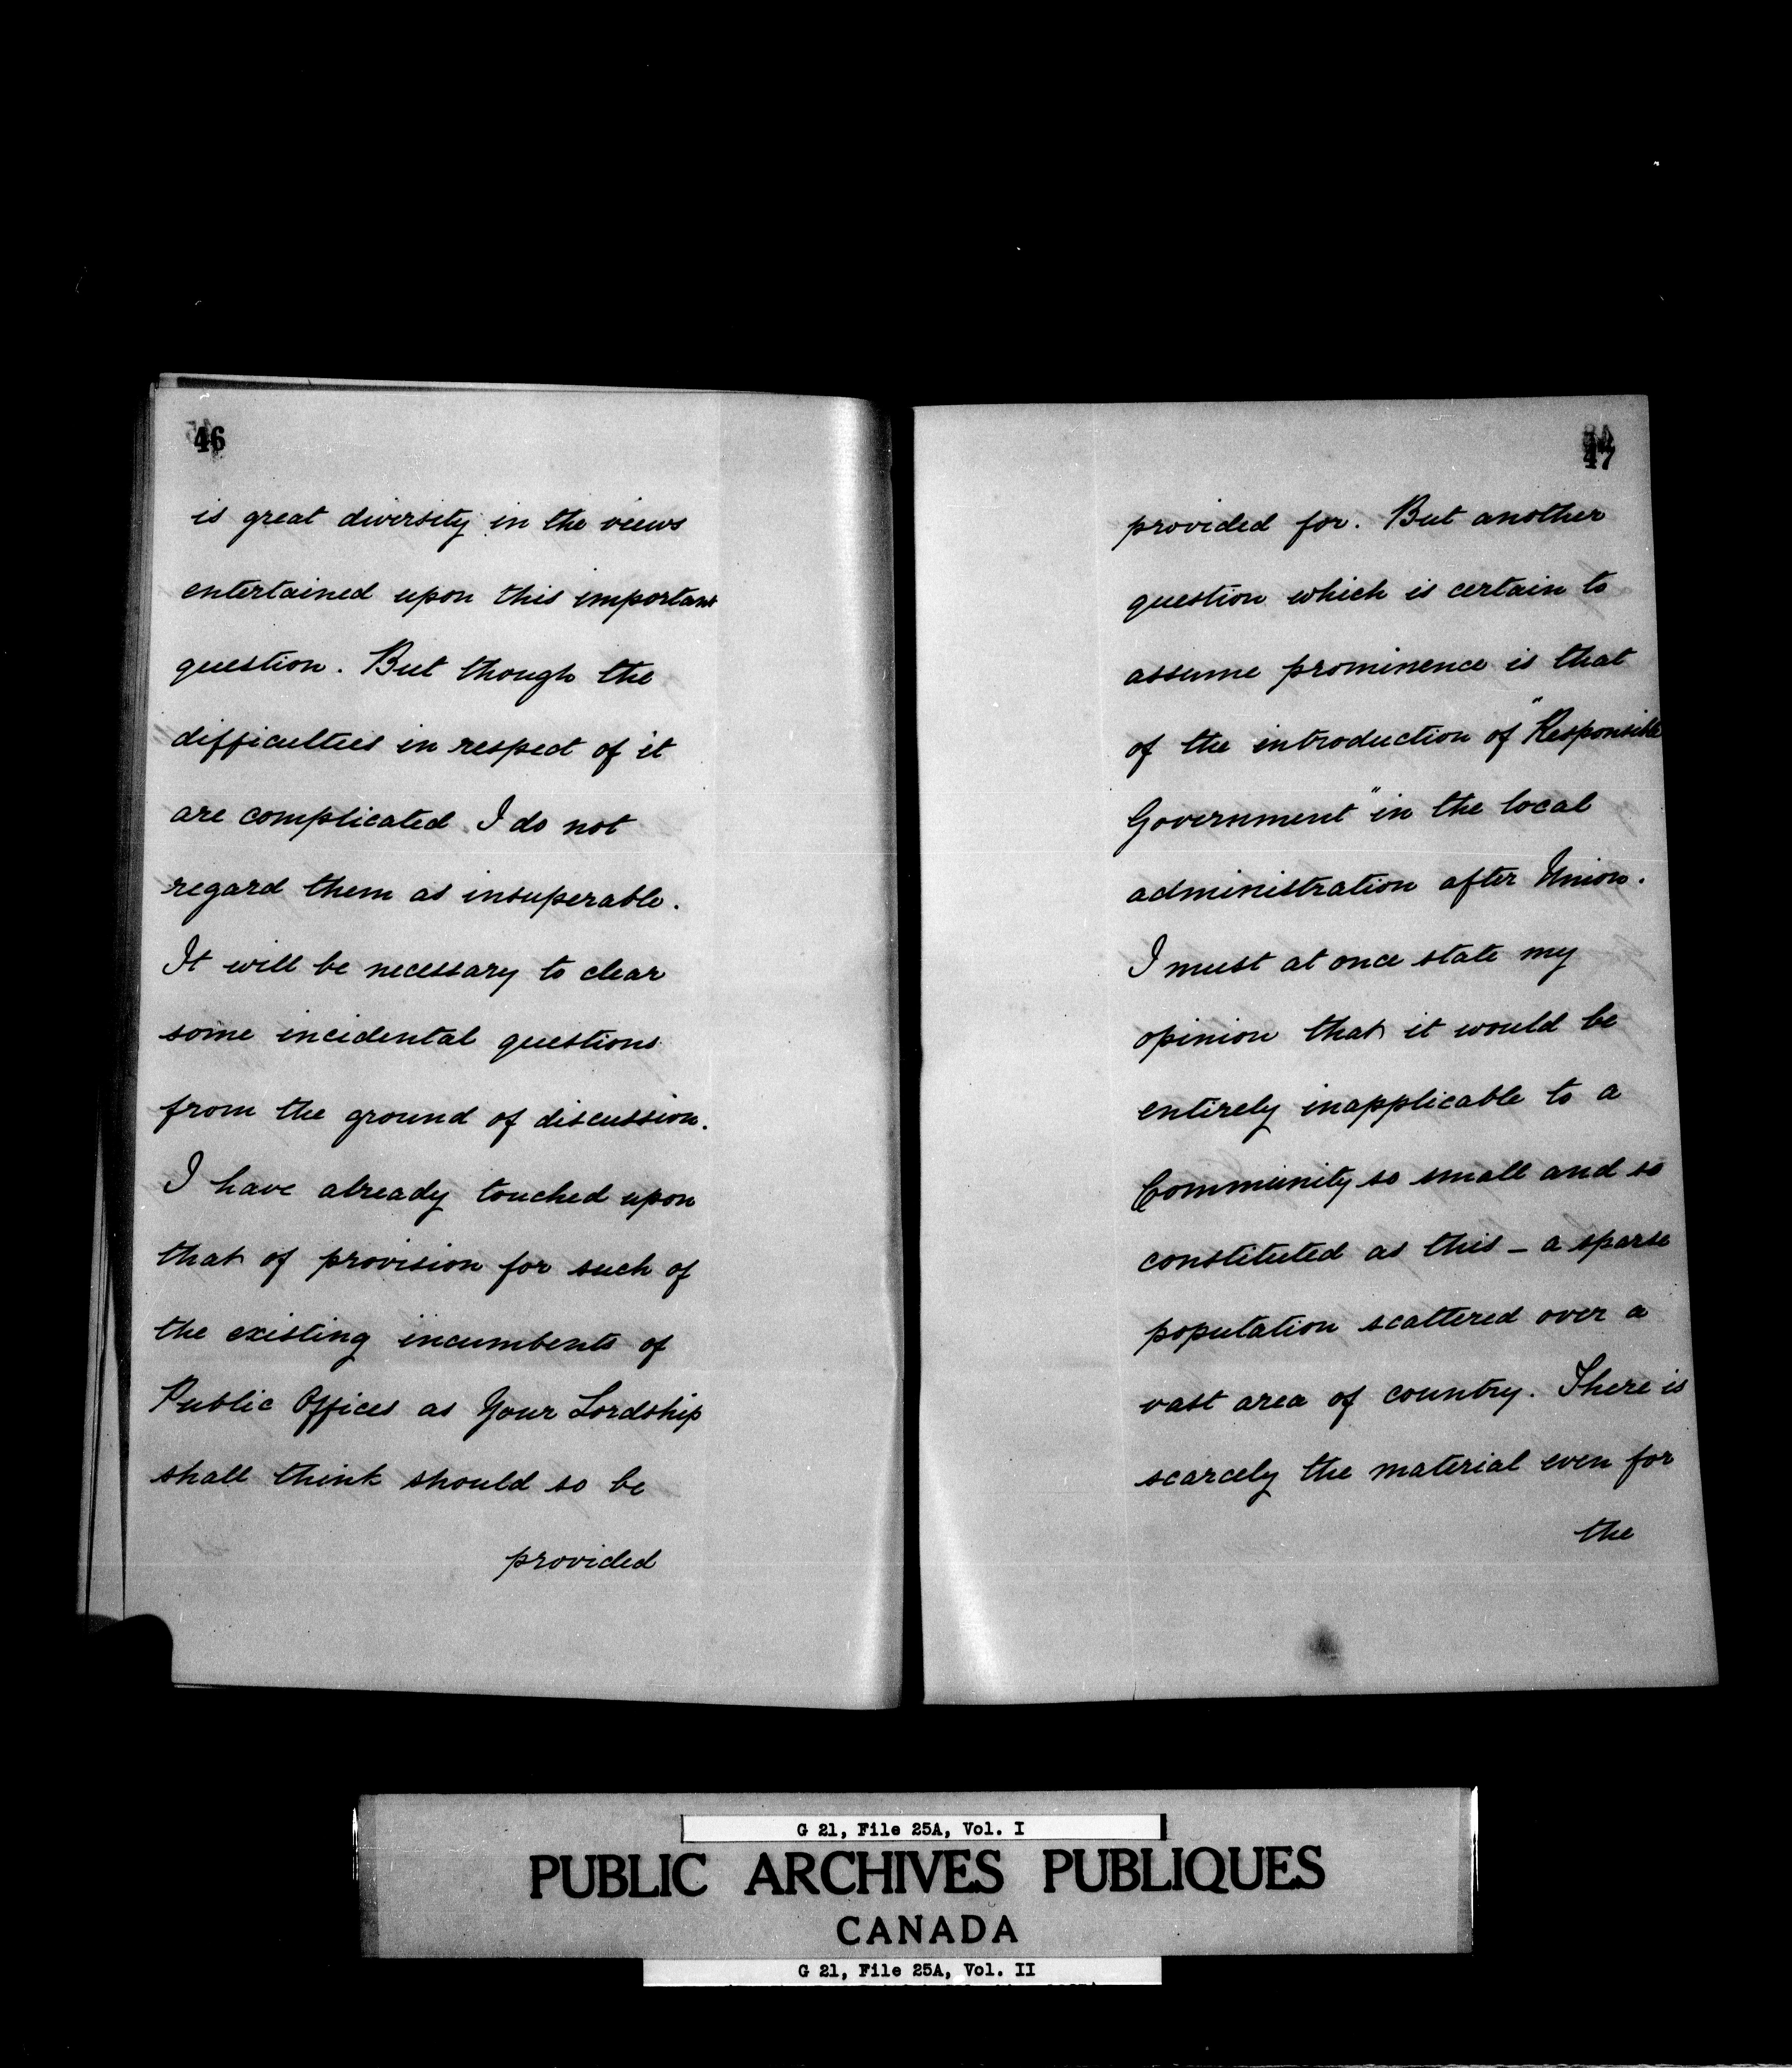 46
is great diversity in the views
entertained upon this important
question. But though the
difficulties in respect of it
are complicated I do not
regard them as insuperable.
It will be necessary to clear
some incidental questions
from the ground of discussion.
I have already touched upon
that of provision for such of
the existing incumbents of
Public Offices as Your Lordship
shall think should so be
provided
47
provided for. But another
question which is certain to
assume prominence is that
of the introduction of "Responsible
Government" in the local
administration after Union.
I must at once state my
opinion that it would be
entirely inapplicable to a
Community so small and so
constituted as this – a sparse
population scattered over a
vast area of country. There is
scarcely the material even for
the
G 21, File 25A, Vol. I
PUBLIC ARCHIVES PUBLIQUES
CANADA
G 21, File 25A, Vol. II